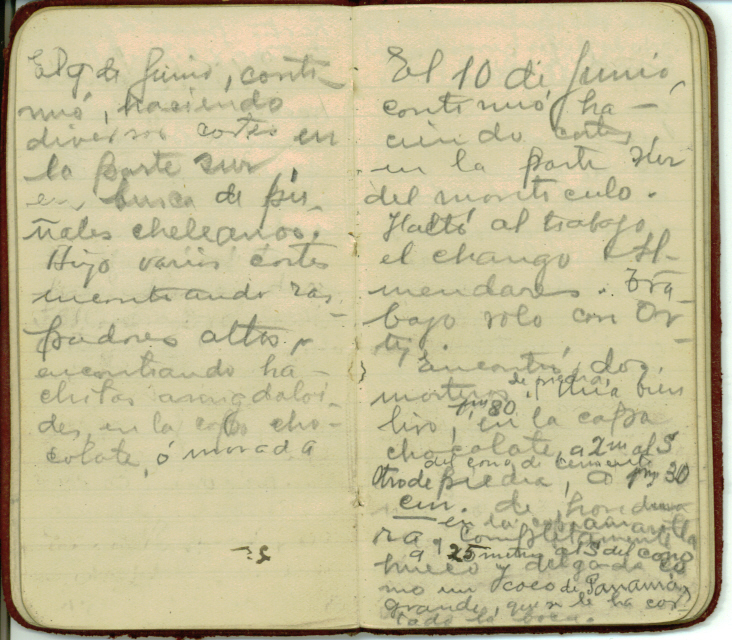 El 9 de Junio, conti-
nuó, haciendo
diversos cortes en
la parte sur
en busca de pu-
ñales cheleanos.
Hizo varios cortes
encontrando ras-
padores altos,
encontrando ha-
chitas amigdaloi-
des, en la capa cho-
colate, ó morada
El 10 de Junio,
continuó ha-
ciendo cortes,
en la parte Sur
del monticulo.
Faltó al trabajo
el chango Al-
mendares. Tra-
bajo solo con Or-
tiz
Encontró, dos,
morteros de piedra, una bien
liso, 1m 80, en la capa
chocolate, a 2m al S
del cono de cemento
Otro de piedra, a 1m 30
cm. de hondura
en la capa amarilla
ra, completamente
a 25 metros al S del cono
hueco y delgada co
mo un coco de Panamá,
grande, que se le ha cor-
tado la boca.